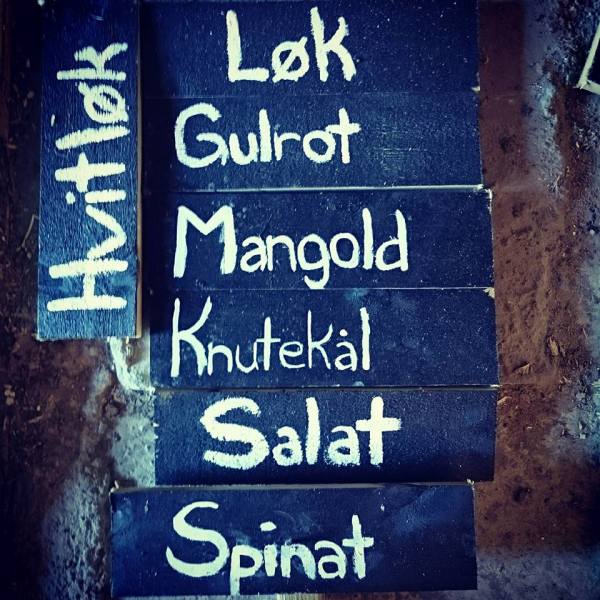 Hvitløk
Løk
Gulrot
Mangold
Knutekål
Salat
Spinat